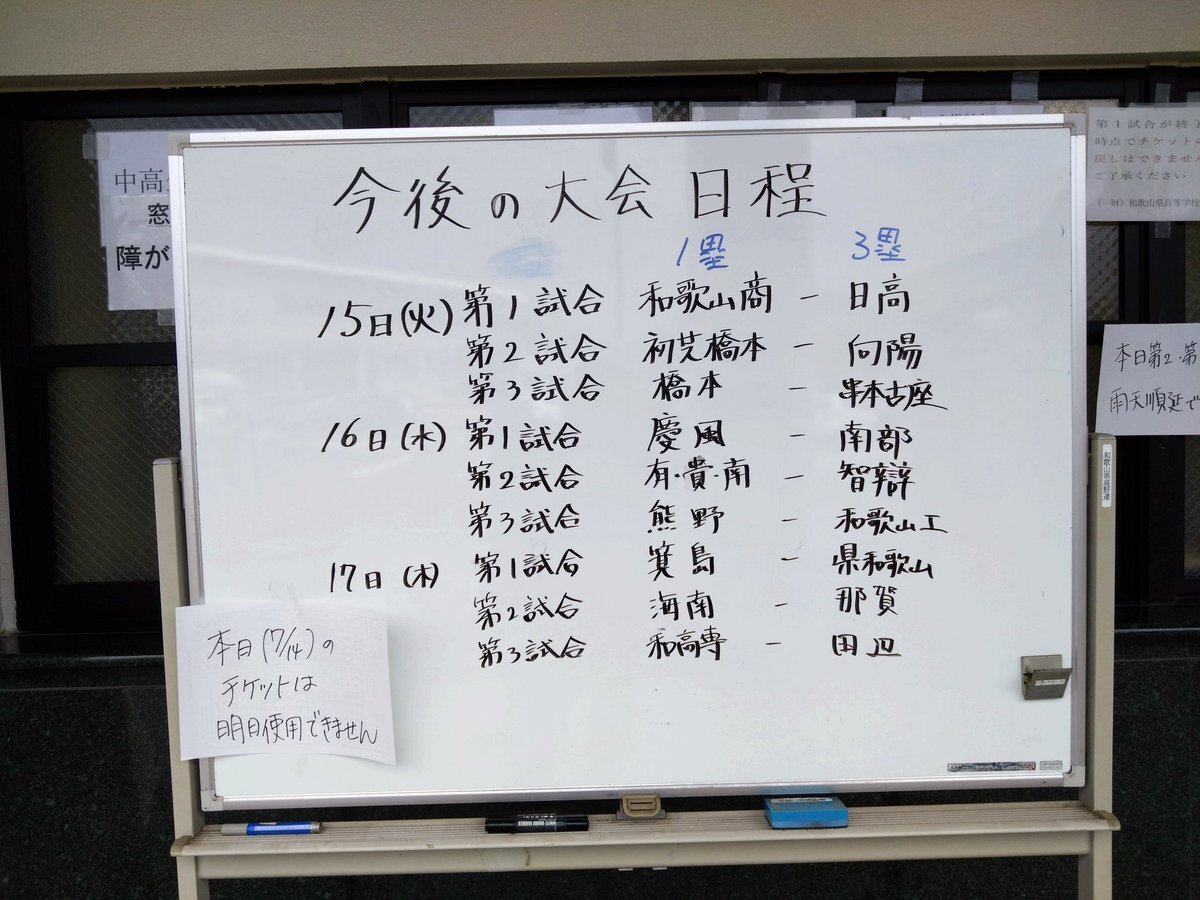 今後の大会日程
1塁 3塁
15日(火) 第1試合 和歌山商 - 日高
第2試合 初芝橋本 - 向陽
第3試合 橋本 - 串本古座
16日(水) 第1試合 慶風 - 南部
第2試合 有・貴・南 - 智辯
第3試合 熊野 - 和歌山工
17日(木) 第1試合 箕島 - 県和歌山
第2試合 海南 - 那賀
第3試合 和高専 - 田辺
本日(7/14)の
チケットは
明日使用できません
中高
窓
障が
第1試合が終了
時点でチケットの
戻しはできません
ご了承ください
(一財)和歌山県高等学校
本日第2・第
雨天順延で
和歌山県高野連